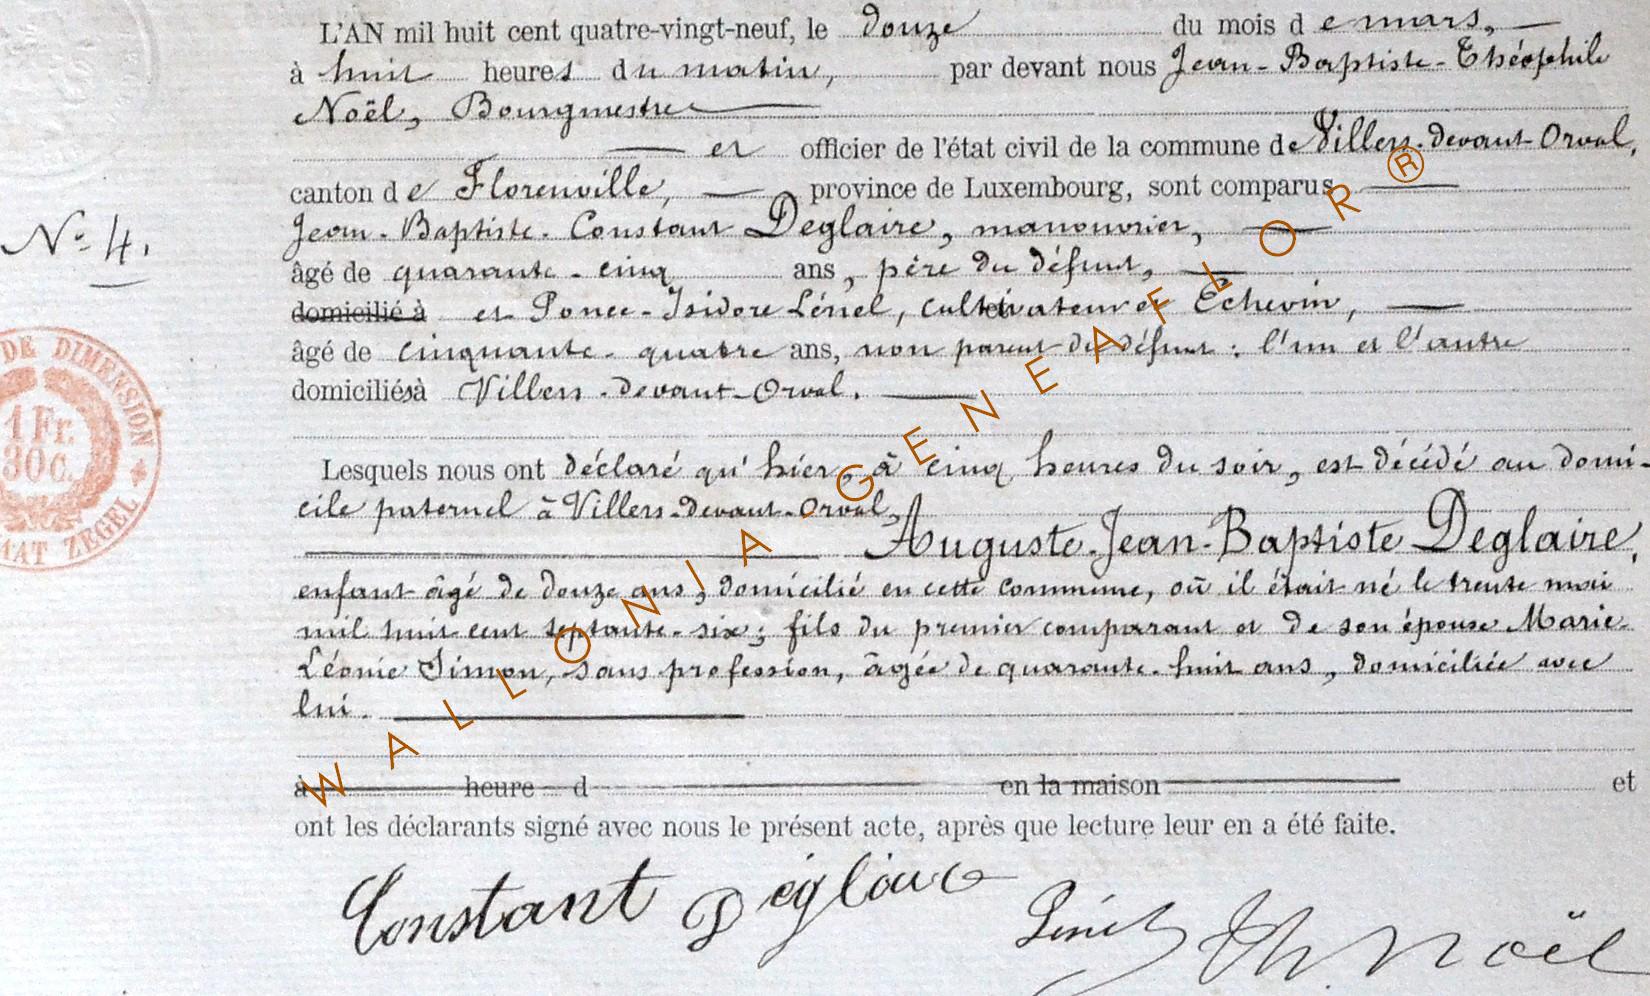 L'AN mil huit cent quatre-vingt-neuf, le douze du mois de mars,
à huit heures du matin, par devant nous Jean-Baptiste-Théophile
Noël, Bourgmestre
et officier de l'état civil de la commune de Villers-devant-Orval,
canton de Florenville, province de Luxembourg, sont comparus
Jean-Baptiste-Constant Deglaire, manouvrier,
N° 4.
âgé de quarante-cinq ans, père du défunt,
domicilié à et Ponce-Isidore Lénel, cultivateur et Echevin,
âgé de cinquante-quatre ans, non parent du défunt : l'un et l'autre
domiciliés à Villers-devant-Orval.
DE DIMENSION
1 Fr.
30 C.
ZEGEL
Lesquels nous ont déclaré qu'hier, à cinq heures du soir, est décédé au domi-
cile paternel à Villers-devant-Orval,
Auguste-Jean-Baptiste Deglaire,
enfant âgé de douze ans, domicilié en cette commune, où il était né le trente mai
mil huit cent septante-six ; fils du premier comparant et de son épouse Marie-
Léonie Simon, sans profession, âgée de quarante-huit ans, domiciliée avec
lui.
à heure d en la maison et
ont les déclarants signé avec nous le présent acte, après que lecture leur en a été faite.
Constant Déglaire Lénel Th. Noël
WALLONIA-GENEAFLOR®